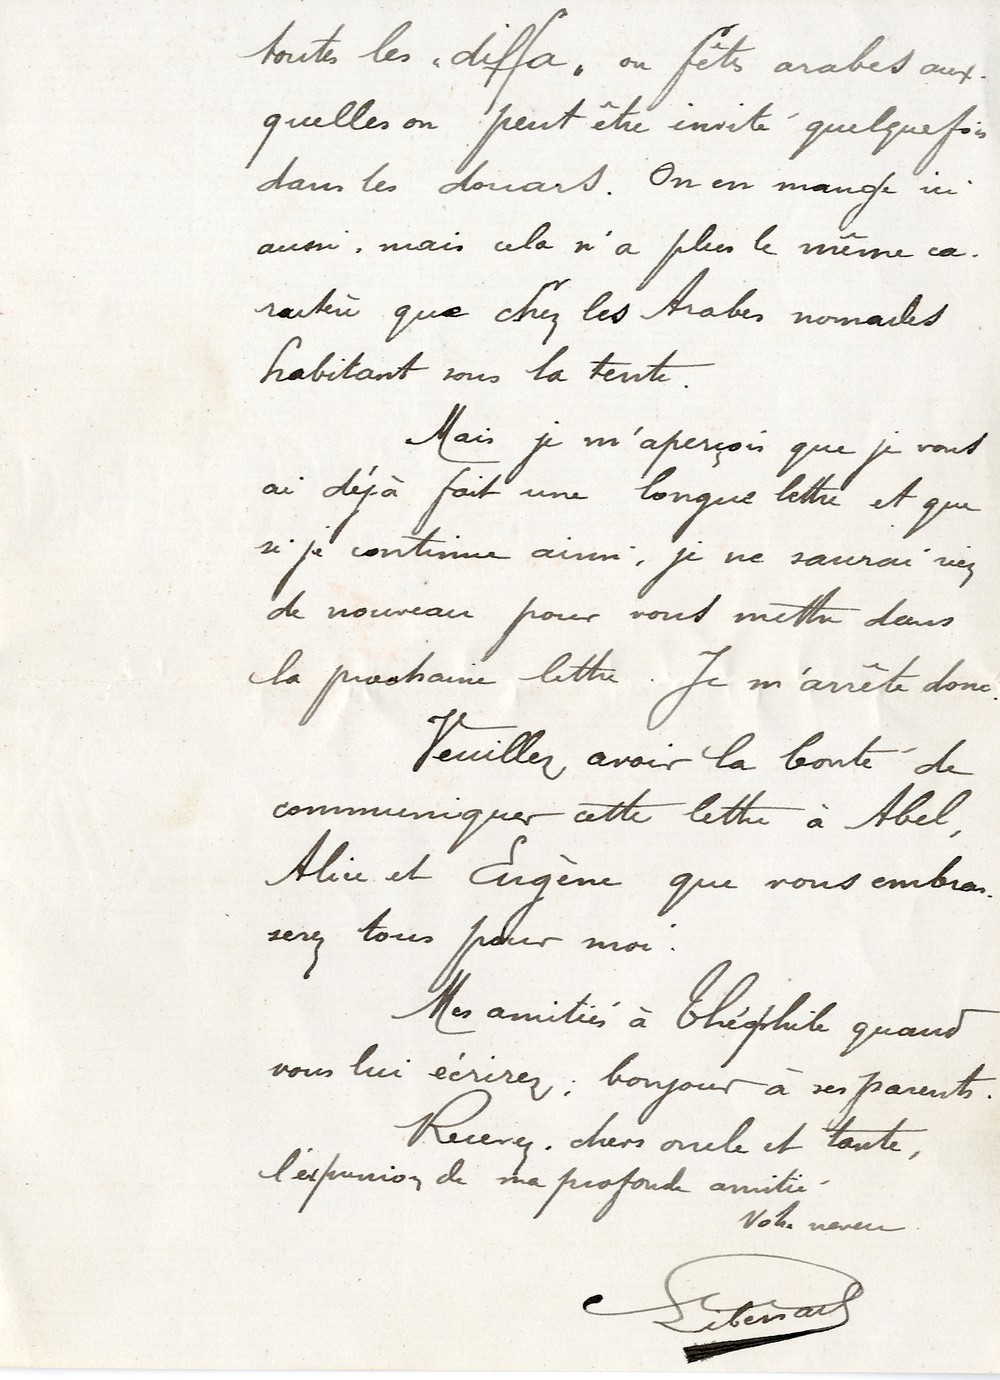 toutes les "diffa" ou fêtes arabes aux-
quelles on peut être invité quelquefois
dans les douars. On en mange ici
aussi, mais cela n'a plus le même ca-
ractère que chez les Arabes nomades
habitant sous la tente.
Mais je m'aperçois que je vous
ai déjà fait une longue lettre et que
si je continue ainsi, je ne saurai rien
de nouveau pour vous mettre dans
la prochaine lettre. Je m'arrête donc.
Veuillez avoir la bonté de
communiquer cette lettre à Abel,
Alice et Eugène que vous embras-
serez tous pour moi.
Mes amitiés à Théophile quand
vous lui écrirez; bonjour à ses parents.
Recevez, chers oncle et tante,
l'expression de ma profonde amitié.
Votre neveu